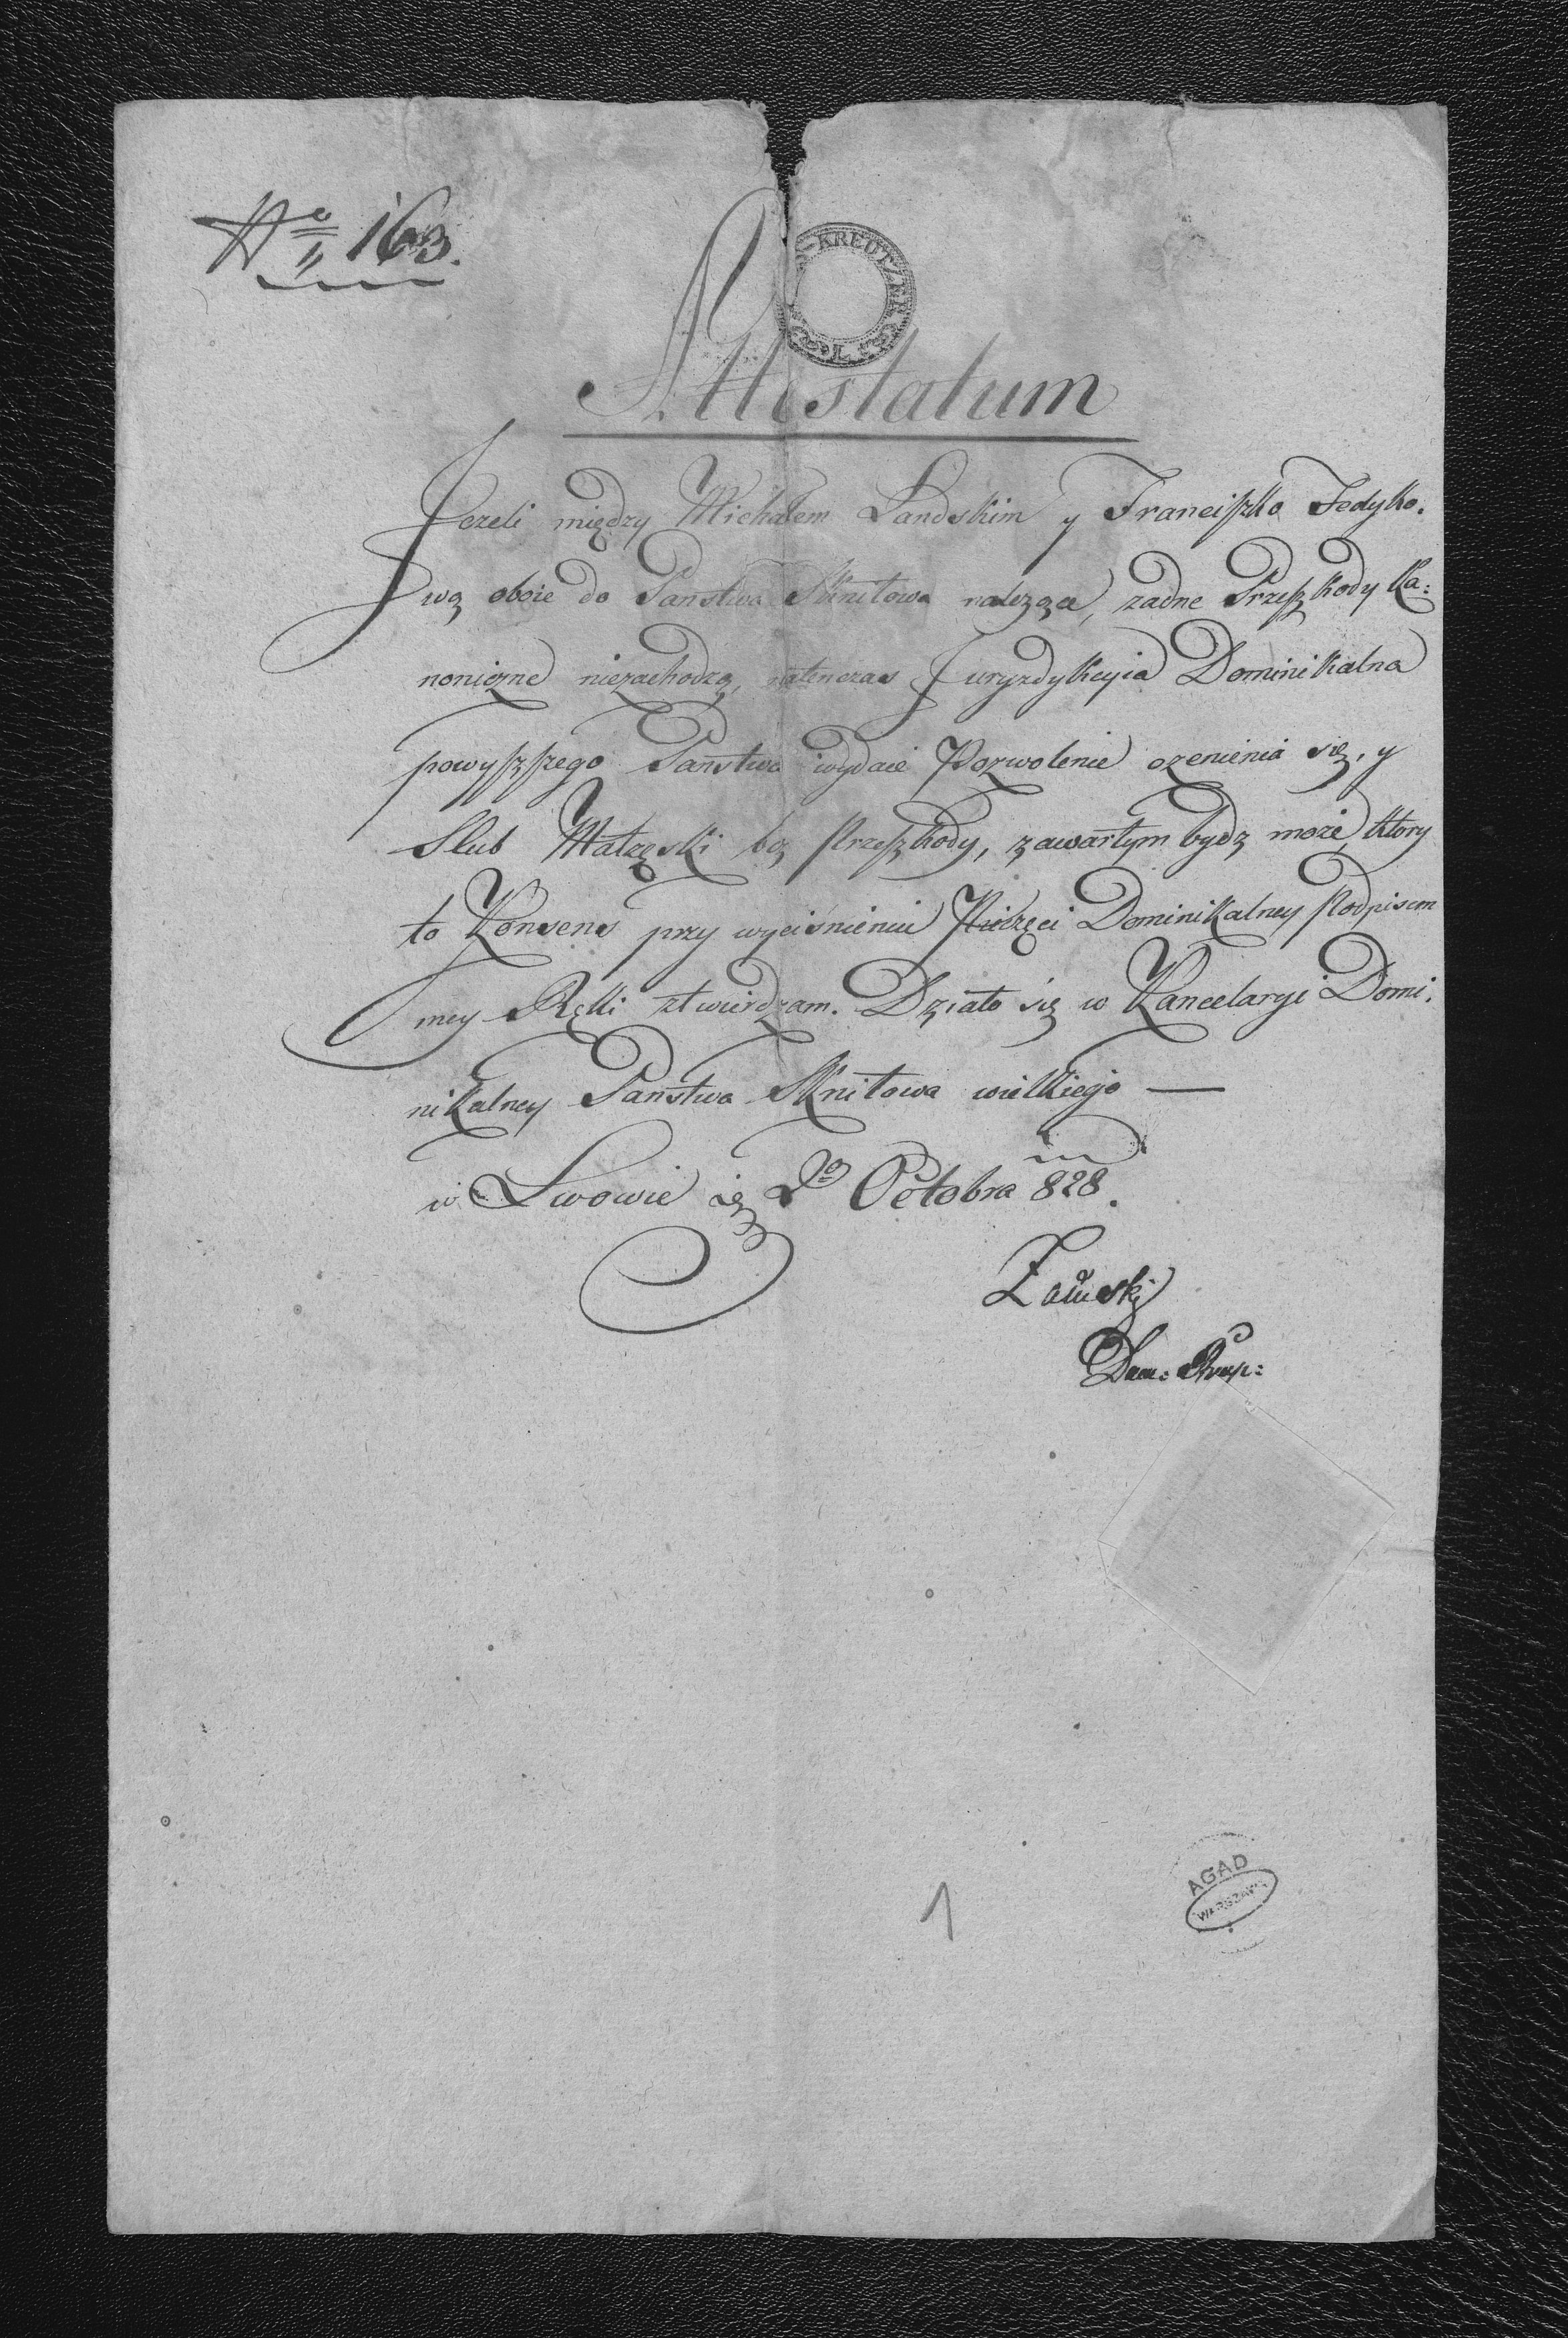 No 163.
KREUTZER
Attestatum
Jezeli między Michałem Landskim y Franciszką Fedyko.
wą oboie do Państwa Sknitowa należące, żadne Przeszkody Ka:
noniczne niezachodzą, natenczas Juryzdykcyia Dominikalna
powyższego Państwa wydaie Pozwolenie ożenienia się, y
Slub Małzęski bez Przeszkody, zawartym bydz może, ktory
to Konsens przy wyciśnieniu Pieczęci Dominikalney Podpisem
mey Ręki ztwierdzam. Działo się w Kancelaryi Domi.
nikalney Państwa Sknitowa wielkiego —
w Lwowie 2go Octobra 828.
Zaluski
Dom:
AGAD
WARSZAWA
1